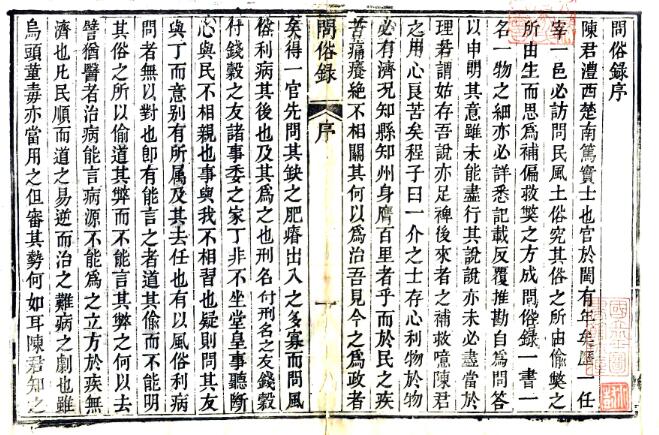 問俗錄序
陳君澧西楚南篤實士也官於閩有年矣歷一任
宰一邑必訪問民風土俗究其俗之所由偷獘之
所由生而思爲補偏救獘之方成問俗錄一書一
名一物之細亦必詳悉記載反覆推勘自爲問答
以申明其意雖未能盡行其說說亦未必盡當於
理若謂姑存吾說亦足裨後來者之補救噫陳君
之用心良苦矣程子曰一介之士存心利物於物
必有濟况知縣知州身膺百里者乎而於民之疾
苦痛癢絶不相關其何以爲治吾見今之爲政者
問俗錄
序
矣得一官先問其缺之肥瘠出入之多寡而問風
俗利病其後也及其爲之也刑名付刑名之友錢穀
付錢穀之友諸事委之家丁非不坐堂皇事聽斷
心與民不相親也事與我不相習也疑則問其友
與丁而意别有所属及其去任也有以風俗利病
問者無以對也卽有能言之者道其偷而不能明
其俗之所以偷道其弊而不能言其弊之何以去
譬猶醫者治病能言病源不能爲之立方於疾無
濟也比民順而道之易逆而治之難病之劇也雖
烏頭堇毒亦當用之但審其勢何如耳陳君知之